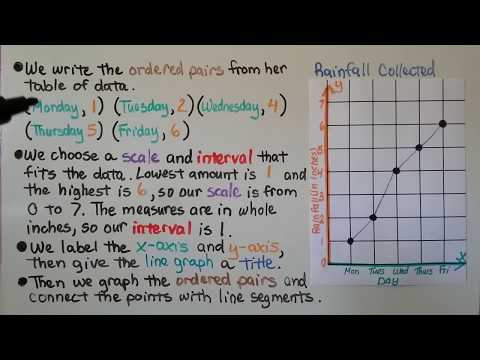 We write the ordered pairs from her
table of data.
(Monday, 1) (Tuesday, 2) (Wednesday, 4)
(Thursday 5) (Friday, 6)
We choose a scale and interval that
fits the data. Lowest amount is 1 and
the highest is 6, so our scale is from
0 to 7. The measures are in whole
inches, so our interval is 1.
We label the x-axis and y-axis,
then give the line graph a title.
Then we graph the ordered pairs and
connect the points with line segments.
Rainfall Collected
y
7
6
5
4
3
2
1
0
Rainfall (in inches)
x
Mon Tues Wed Thurs Fri
DAY